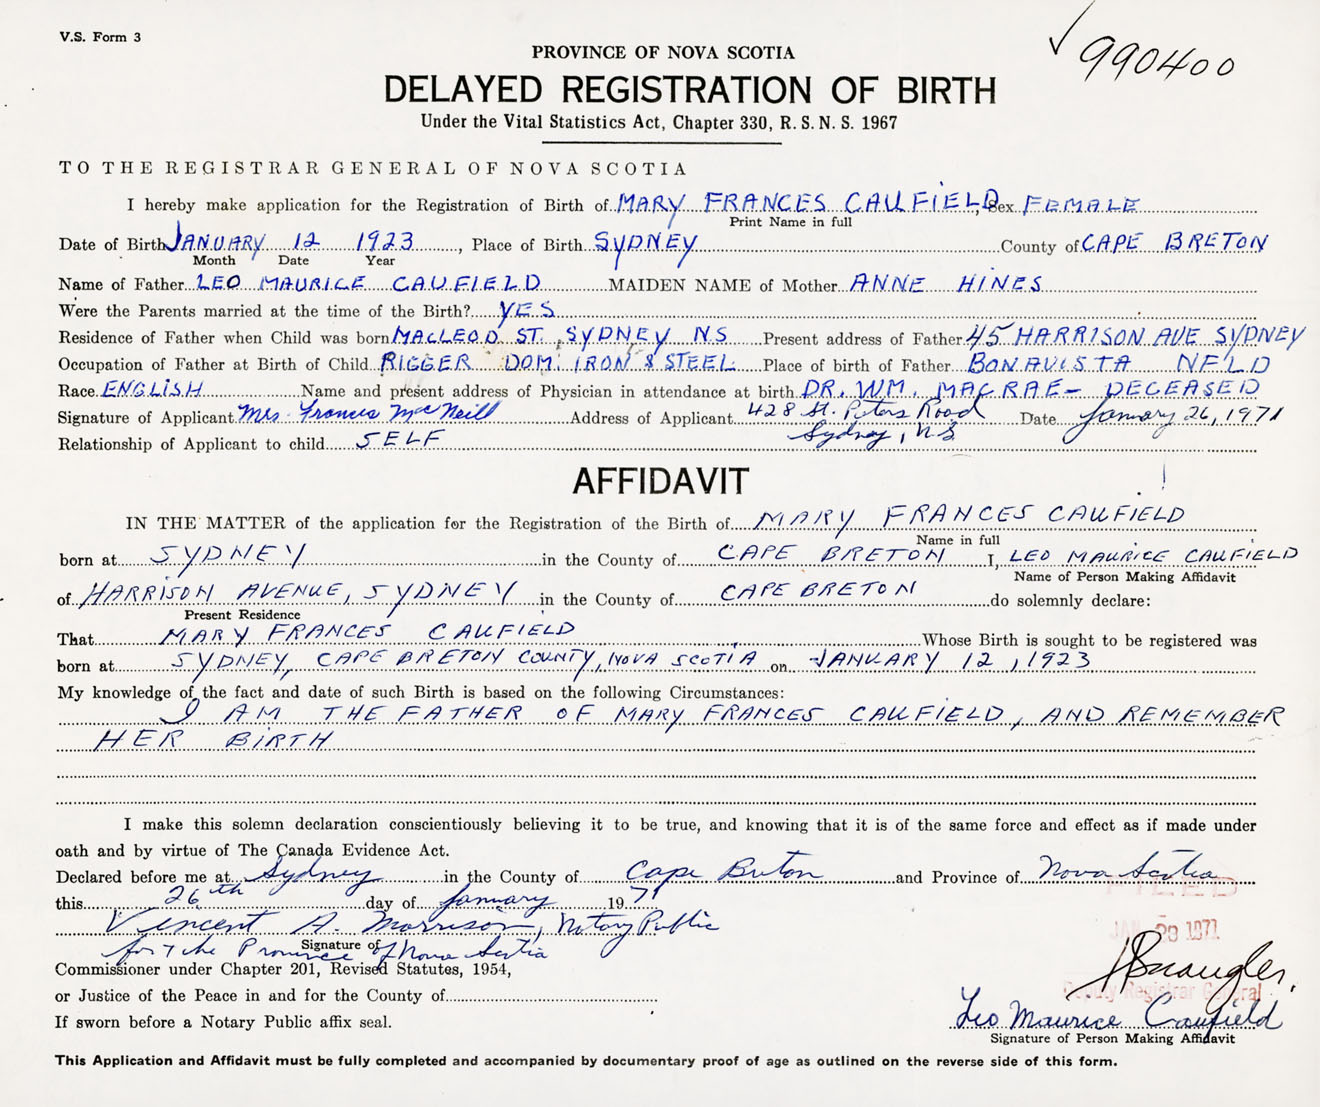 V.S. Form 3
990400
PROVINCE OF NOVA SCOTIA
DELAYED REGISTRATION OF BIRTH
Under the Vital Statistics Act, Chapter 330, R. S. N. S. 1967
TO THE REGISTRAR GENERAL OF NOVA SCOTIA
I hereby make application for the Registration of Birth of MARY FRANCES CAUFIELD, Sex FEMALE
Print Name in full
Date of Birth JANUARY 12 1923, Place of Birth SYDNEY County of CAPE BRETON
Month Date Year
Name of Father LEO MAURICE CAUFIELD MAIDEN NAME of Mother ANNE HINES
Were the Parents married at the time of the Birth? YES
Residence of Father when Child was born MACLEOD ST. SYDNEY NS Present address of Father 45 HARRISON AVE SYDNEY
Occupation of Father at Birth of Child RIGGER DOM. IRON & STEEL Place of birth of Father BONAVISTA NFLD
Race ENGLISH Name and present address of Physician in attendance at birth DR. WM. MACRAE - DECEASED
Signature of Applicant Mrs. Francis McNeill Address of Applicant 428 St. Peters Road Date January 26, 1971
Relationship of Applicant to child SELF Sydney, N.S
AFFIDAVIT
IN THE MATTER of the application for the Registration of the Birth of MARY FRANCES CAUFIELD
Name in full
born at SYDNEY in the County of CAPE BRETON I, LEO MAURICE CAUFIELD
Name of Person Making Affidavit
of HARRISON AVENUE, SYDNEY in the County of CAPE BRETON do solemnly declare:
Present Residence
That MARY FRANCES CAUFIELD Whose Birth is sought to be registered was
born at SYDNEY, CAPE BRETON COUNTY, NOVA SCOTIA on JANUARY 12, 1923
My knowledge of the fact and date of such Birth is based on the following Circumstances:
I AM THE FATHER OF MARY FRANCES CAUFIELD, AND REMEMBER
HER BIRTH
I make this solemn declaration conscientiously believing it to be true, and knowing that it is of the same force and effect as if made under
oath and by virtue of The Canada Evidence Act.
Declared before me at Sydney in the County of Cape Breton and Province of Nova Scotia
FILED
this 26th day of January 1971
Vincent A. Morrison, Notary Public
JAN 28 1971
for the Province of Nova Scotia
Signature of
Commissioner under Chapter 201, Revised Statutes, 1954,
Deputy Registrar General
or Justice of the Peace in and for the County of
Leo Maurice Caufield
If sworn before a Notary Public affix seal.
Signature of Person Making Affidavit
This Application and Affidavit must be fully completed and accompanied by documentary proof of age as outlined on the reverse side of this form.